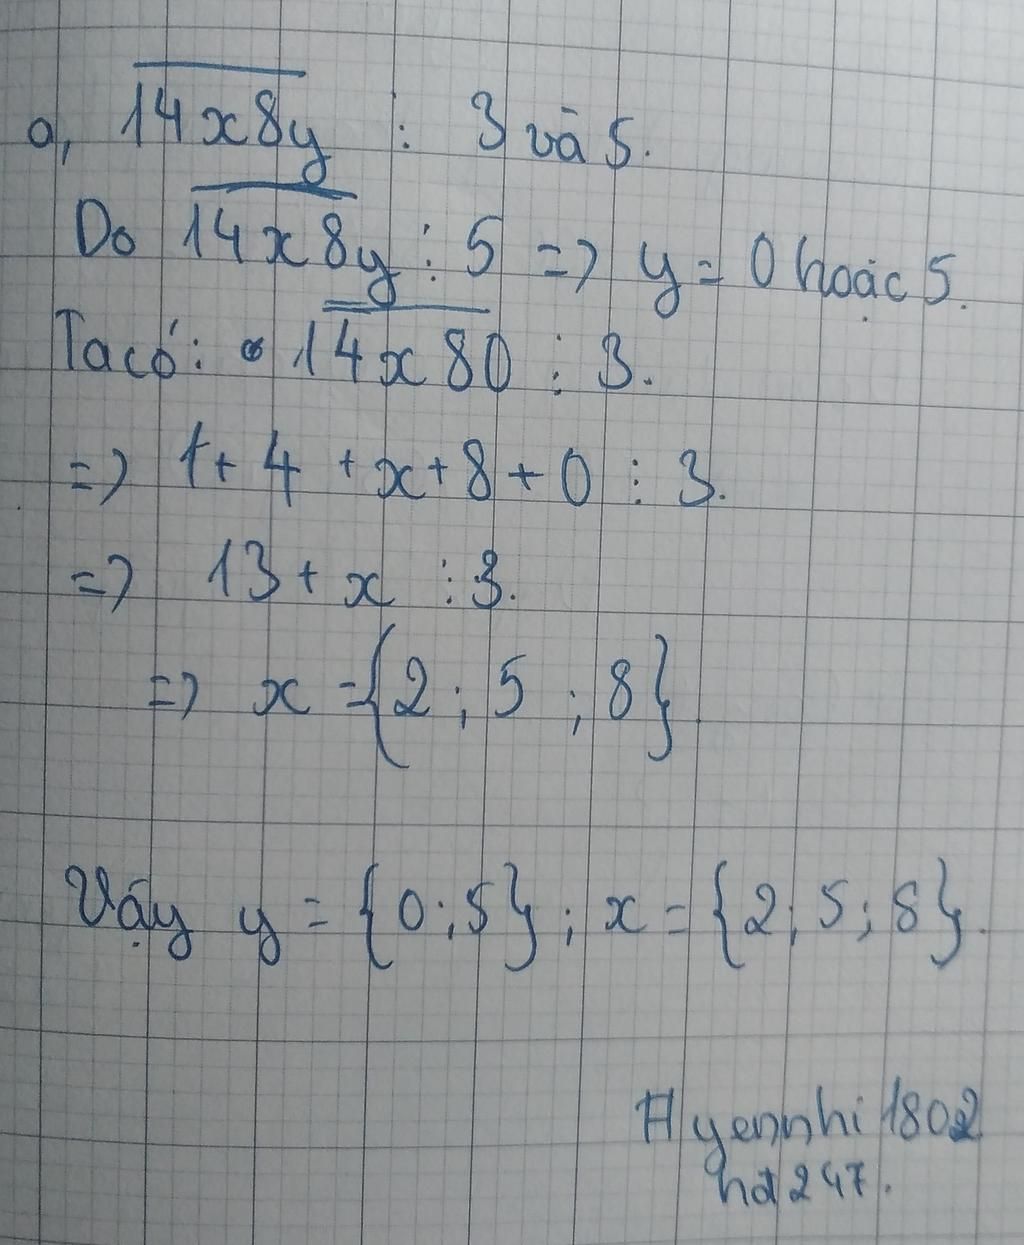 a, 14x8y ⋮ 3 và 5.
Do 14x8y ⋮ 5 => y = 0 hoặc 5.
Ta có: 14x80 ⋮ 3.
=> 1 + 4 + x + 8 + 0 ⋮ 3.
=> 13 + x ⋮ 3.
=> x = {2 ; 5 ; 8}
Vậy y = {0 ; 5} ; x = {2 ; 5 ; 8}.
# yennhi1802
hd247.